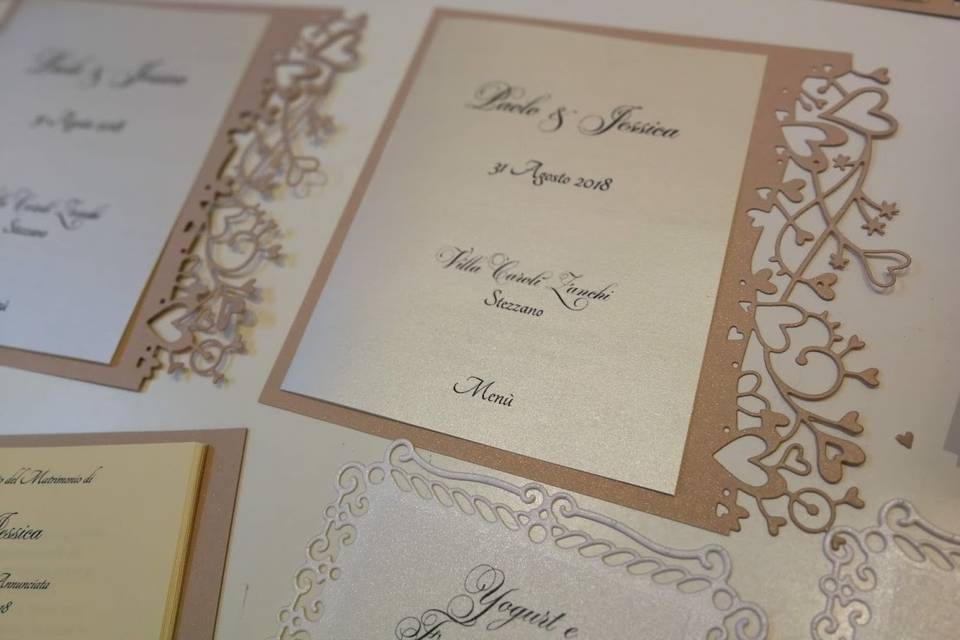 Paolo & Jessica
31 Agosto 2018
Villa Caroli Zanchi
Stezzano
Menù
Paolo & Jessica
31 Agosto 2018
Caroli Zanchi
Stezzano
del Matrimonio di
Jessica
Annunciata
Yogurt e